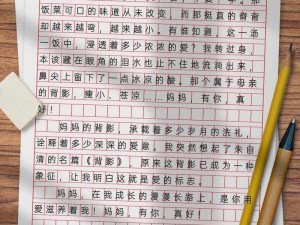 饭菜可口的味道从未改变，而那挺直的脊背
却越来越弯，越来越小。有谁知道，这一汤
一饭中，浸透着多少浓浓的爱？我转过身，
本该藏在眼角的泪水也止不住地流淌出来，
鼻尖上留下了一点冰凉的酸。那个属于母亲
的背影，瘦小、苍凉……妈妈，有你，真
好！
妈妈的背影，承载着多少岁月的洗礼，
诠释着多少深深的爱意。我突然想起了朱自
清的名篇《背影》，原来这背影已成为一种
象征，让我明白这就是爱的标志。
妈妈，在我成长的漫漫长路上，是你用
爱滋养着我！妈妈，有你，真好！